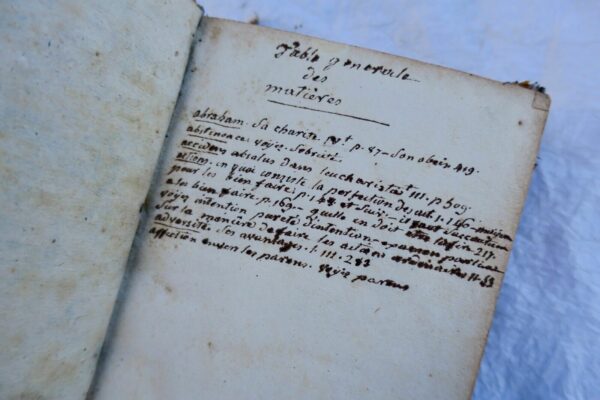 Table generale
des
matieres
abraham. Sa charité t. p. 87 - Son obeis 419.
abstinence. voyez. Sobrieté
accidens absolus dans leucharistie t. III. p 609
actions. en quoi consiste la perfection de
pour les bien faire. p. 148 et suiv - il faut
a les bien faire p. 169 - quelle en doit etre la fin 217.
voyez intention pureté d'intention - examen particulier
Sur la maniere de faire les actions ordinaires II. 53
adversité. Ses avantages. t. III - 283
affection envers les parens. voyez parens